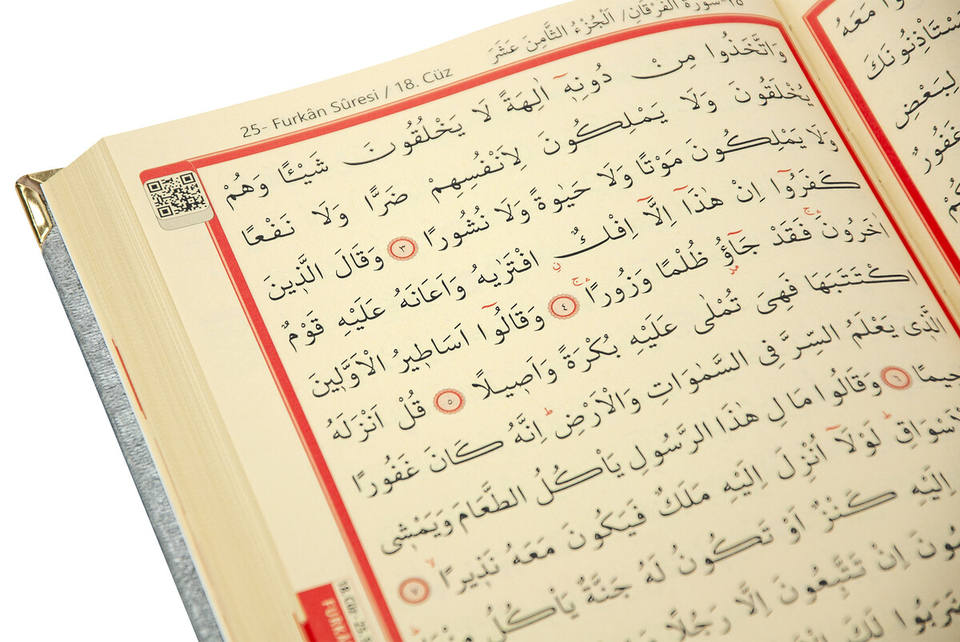 ٢٥-سورة الفرقان/ الجزء الثامن عشر
25- Furkân Sûresi / 18. Cüz
وَاتَّخَذُوا مِنْ دُونِه۪ٓ اٰلِهَةً لَا يَخْلُقُونَ شَيْـًٔا وَهُمْ
يُخْلَقُونَ وَلَا يَمْلِكُونَ لِاَنْفُسِهِمْ ضَرًّا وَلَا نَفْعًا
وَلَا يَمْلِكُونَ مَوْتًا وَلَا حَيٰوةً وَلَا نُشُورًا ٣ وَقَالَ الَّذ۪ينَ
كَفَرُٓوا اِنْ هٰذَٓا اِلَّٓا اِفْكٌ افْتَرٰيهُ وَاَعَانَهُ عَلَيْهِ قَوْمٌ
اٰخَرُونَ فَقَدْ جَٓاؤُ ظُلْمًا وَزُورًا ٤ وَقَالُٓوا اَسَاط۪يرُ الْاَوَّل۪ينَ
اكْتَتَبَهَا فَهِيَ تُمْلٰى عَلَيْهِ بُكْرَةً وَاَص۪يلًا ٥ قُلْ اَنْزَلَهُ
الَّذ۪ي يَعْلَمُ السِّرَّ فِي السَّمٰوَاتِ وَالْاَرْضِ اِنَّهُ كَانَ غَفُورًا
ح۪يمًا ٦ وَقَالُوا مَالِ هٰذَا الرَّسُولِ يَأْكُلُ الطَّعَامَ وَيَمْش۪ي
لْاَسْوَاقِ لَوْلَٓا اُنْزِلَ اِلَيْهِ مَلَكٌ فَيَكُونَ مَعَهُ نَذ۪يرًا ٧
اِلَيْهِ كَنْزٌ اَوْ تَكُونُ لَهُ جَنَّةٌ يَأْكُلُ
اِنْ تَتَّبِعُونَ اِلَّا رَجُلًا
لَكَ
مَعَهُ
لِبَعْضِ
غَفُورٌ